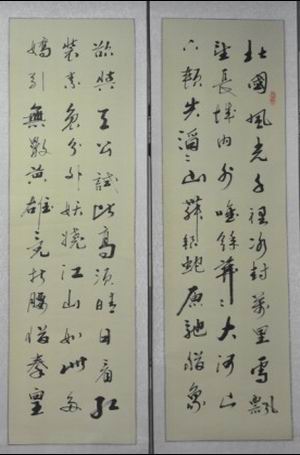 北國風光千裡冰封萬里雪飄
望長城內外唯餘莽〻大河上
下頓失滔〻山舞銀蛇原馳蠟象
欲與天公試比高須晴日看紅
裝素裹分外妖嬈江山如此多
嬌引無數英雄競折腰惜秦皇